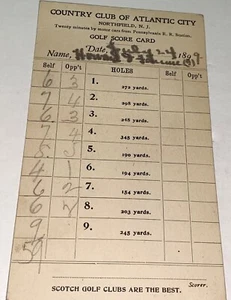 COUNTRY CLUB OF ATLANTIC CITY
NORTHFIELD, N. J.
Twenty minutes by motor cars from Pennsylvania R. R. Station.
GOLF SCORE CARD
Date July 24 1899
Name,
Self Opp't HOLES Self Opp't
6 3 1. 272 yards.
7 4 2. 298 yards.
6 3 3. 268 yards.
7 4 4. 245 yards.
5 5 5. 190 yards.
4 1 6. 194 yards.
6 2 7. 154 yards.
6 8. 203 yards.
9 9. 245 yards.
Scorer.
SCOTCH GOLF CLUBS ARE THE BEST.